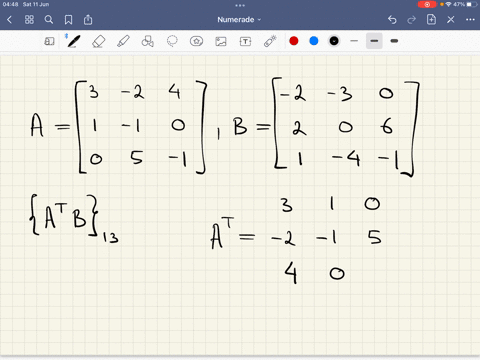 04:48 Sat 11 Jun 47%
Numerade
A = [3 -2 4
1 -1 0
0 5 -1] , B = [-2 -3 0
2 0 6
1 -4 -1]
{A^T B}_13
A^T = 3 1 0
-2 -1 5
4 0